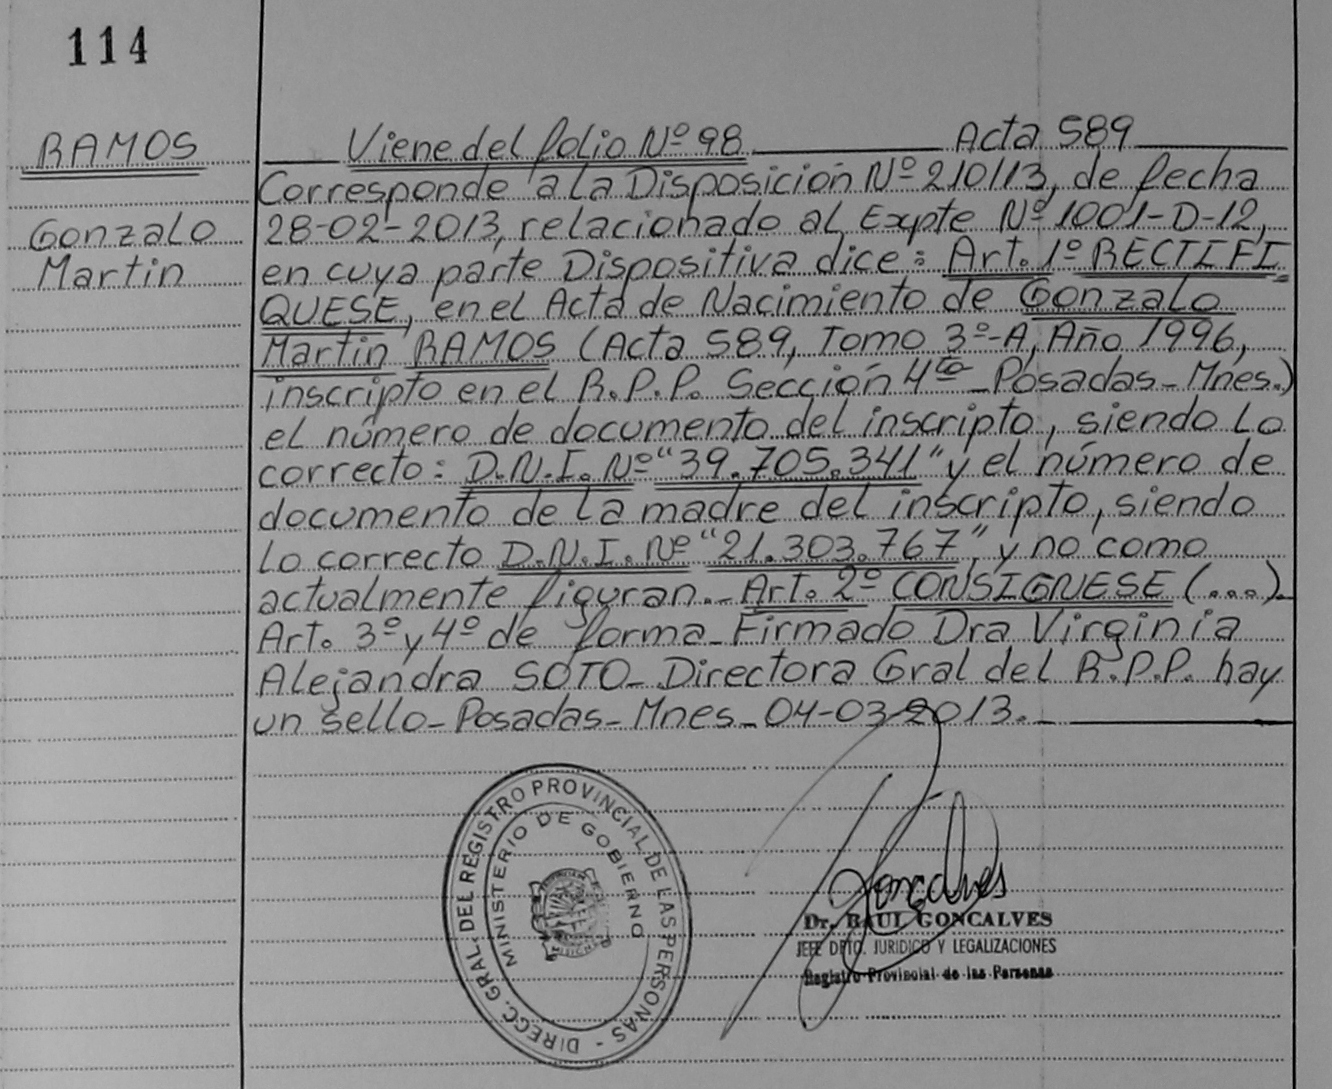 114
RAMOS
Gonzalo
Martin
Viene del folio Nº 98 Acta 589
Corresponde a la Disposición Nº 210/13, de fecha
28-02-2013, relacionado al Expte Nº 1001-D-12,
en cuya parte Dispositiva dice: Art. 1º RECTIFI
QUESE, en el Acta de Nacimiento de Gonzalo
Martin RAMOS (Acta 589, Tomo 3º-A, Año 1996,
inscripto en el R.P.P. Sección 4ta Posadas-Mnes.)
el número de documento del inscripto, siendo lo
correcto: D.N.I. Nº "39.705.341" y el número de
documento de la madre del inscripto, siendo
lo correcto D.N.I. Nº "21.303.767", y no como
actualmente figuran.- Art. 2º CONSIGNESE (...).
Art. 3º y 4º de forma - Firmado Dra Virginia
Alejandra SOTO - Directora Gral del R.P.P. hay
un sello - Posadas - Mnes - 04-03-2013.
DIRECC. GRAL. DEL REGISTRO PROVINCIAL DE LAS PERSONAS -
MINISTERIO DE GOBIERNO
Goncalves
Dr. RAUL GONCALVES
JEFE DPTO. JURIDICO Y LEGALIZACIONES
Registro Provincial de las Personas